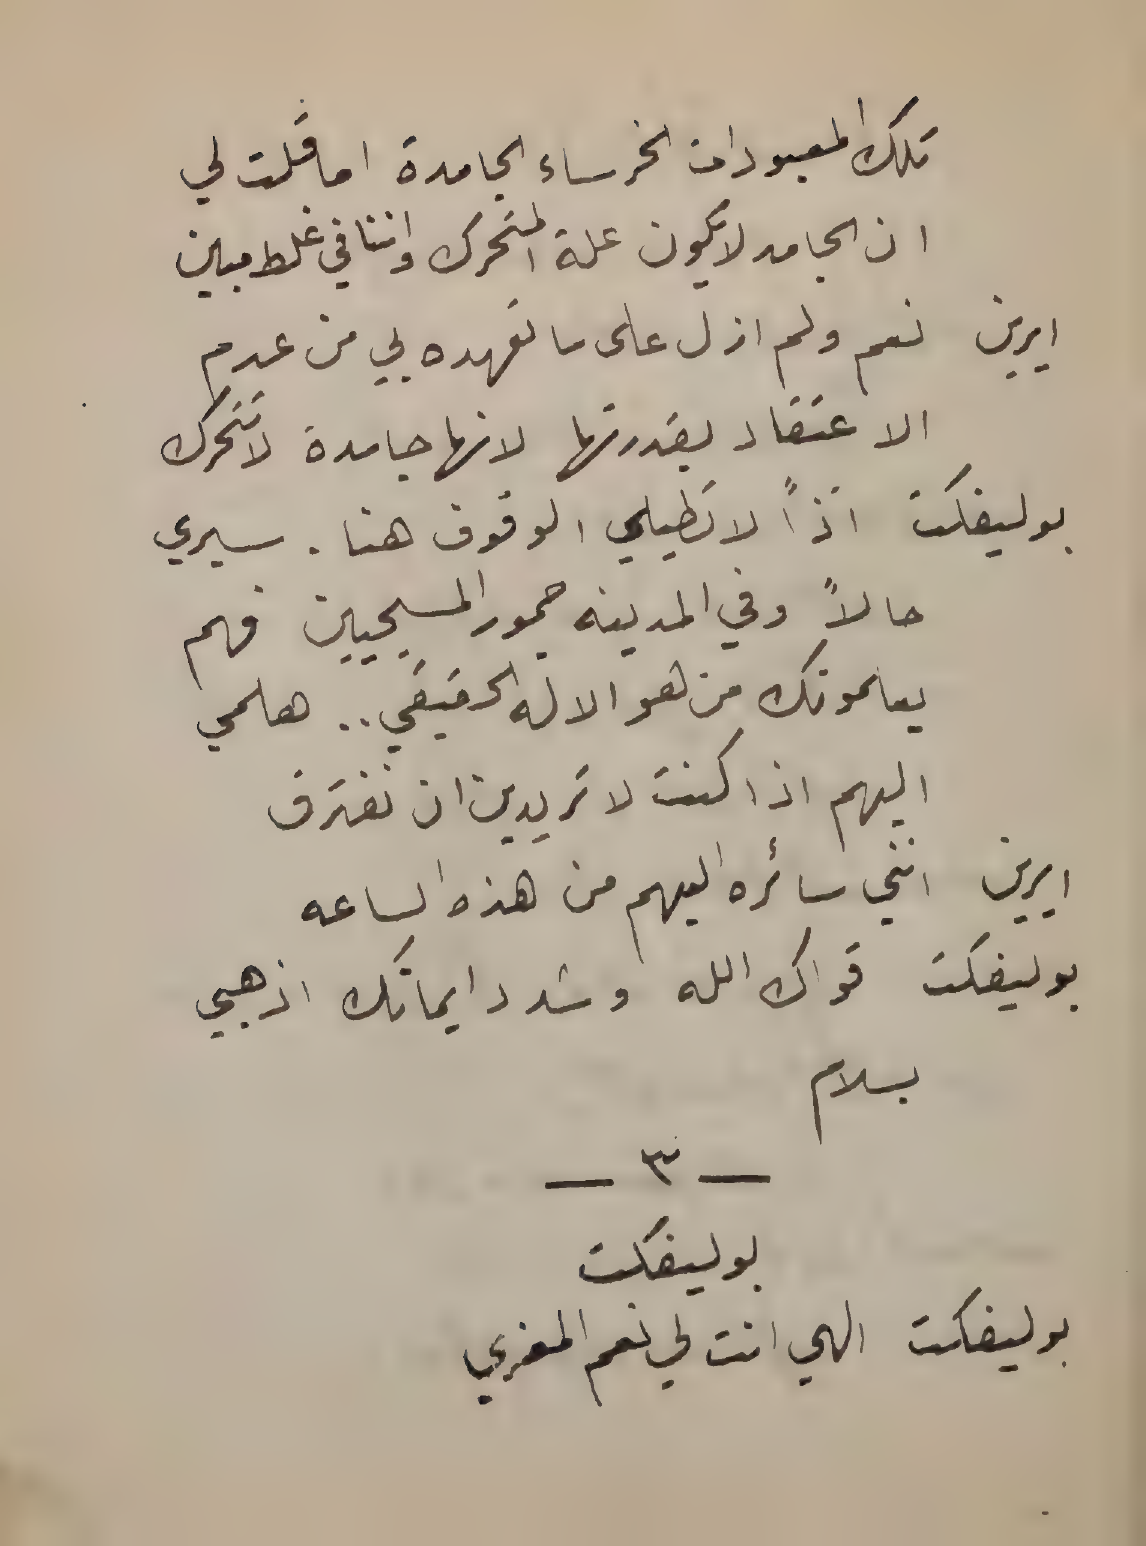 تلك المعبودات الخرساء الجامدة اما قلت لي
ان الجامد لا يكون علة المتحرك واننا في غلط مبين
ايرين نعم ولم ازل على ما تعهده بي من عدم
الاعتقاد بقدرتها لانها جامدة لا تتحرك
بوليفكت اذاً لا تطيلي الوقوف هنا . سيري
حالاً وفي المدينه جمهور المسيحيين فهم
يعلمونك من هو الاله الحقيقي .. هلمي
اليهم اذا كنت لا تريدين ان نفترق
ايرين انني سائره اليهم من هذه الساعه
بوليفكت قواك الله وشدد ايمانك اذهبي
بسلام
— ٣ —
بوليفكت
بوليفكت الهي انت لي نعم المعزي